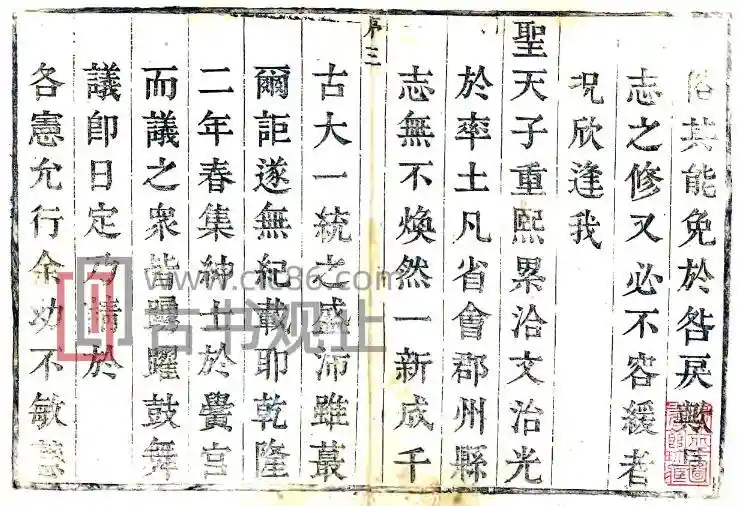 俗其能免於咎戾歟且
志之修又必不容緩者
况欣逢我
聖天子重熙累洽文治光
於率土凡省會郡州縣
志無不煥然一新成千
序三
古大一統之盛沛雖蕞
爾詎遂無紀載耶乾隆
二年春集紳士於黌宮
而議之衆皆踴躍鼓舞
議卽日定乃請於
各憲允行余功不敏
www.ctc86.com
古书观止